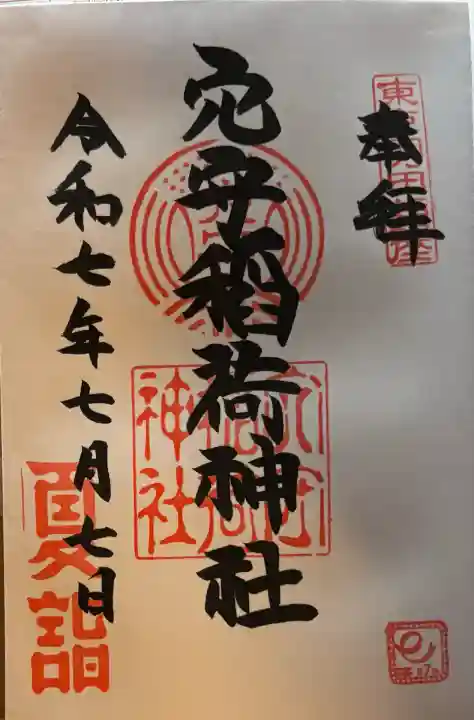 奉拝
穴守稲荷神社
令和七年七月七日
夏詣
穴守
稲荷
神社